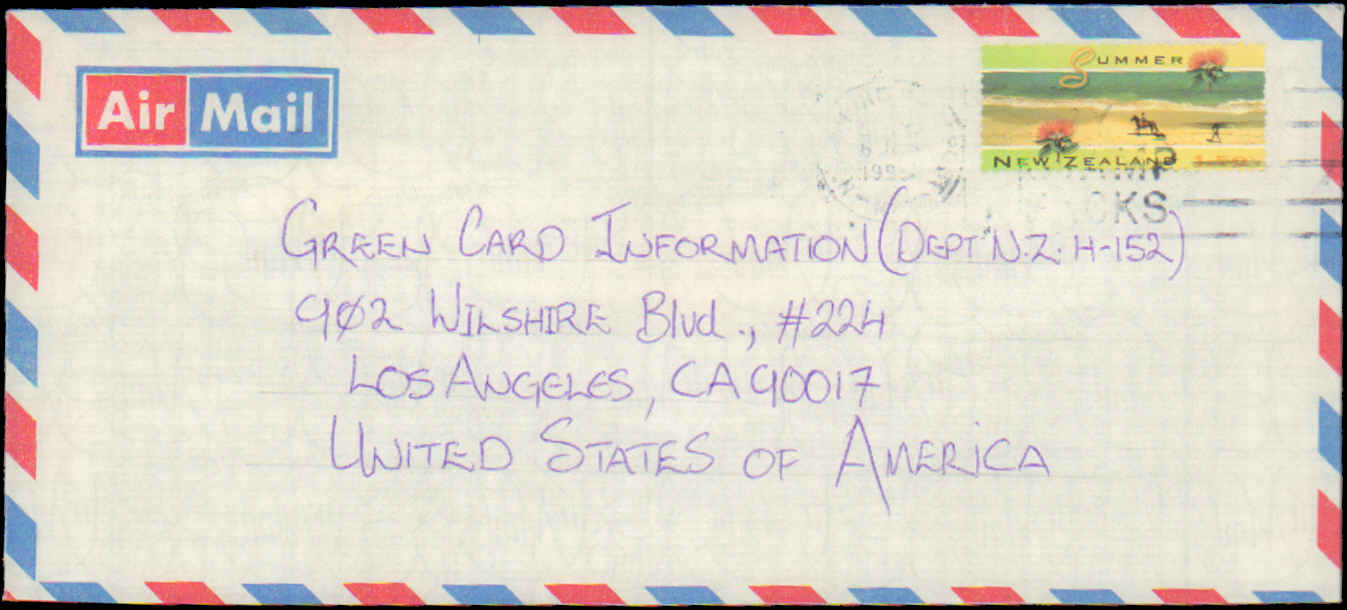 Air Mail
SUMMER
NEW ZEALAND 1.50
GREEN CARD INFORMATION (DEPT N.Z. H-152)
9Ø2 WILSHIRE Blvd., #224
LOS ANGELES, CA 90017
UNITED STATES OF AMERICA